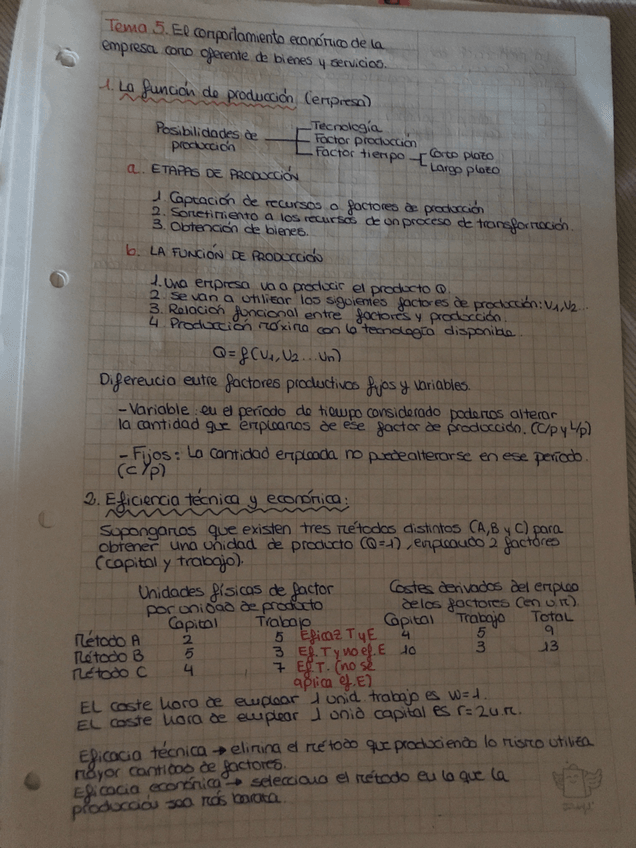 Tema 5. El comportamiento económico de la
empresa como oferente de bienes y servicios.
1. La función de producción (empresa)
Posibilidades de producción
Tecnología
Factor producción
Factor tiempo
Corto plazo
Largo plazo
a. ETAPAS DE PRODUCCIÓN
1. Captación de recursos o factores de producción
2. Sometimiento a los recursos de un proceso de transformación.
3. Obtención de bienes.
b. LA FUNCIÓN DE PRODUCCIÓN
1. Una empresa va a producir el producto Q.
2. Se van a utilizar los siguientes factores de producción: V1, V2...
3. Relación funcional entre factores y producción.
4. Producción máxima con la tecnología disponible
Q = f(V1, V2 ... Vn)
Diferencia entre factores productivos fijos y variables.
- Variable: en el período de tiempo considerado podemos alterar
la cantidad que empleamos de ese factor de producción. (C/p y L/p)
- Fijos: La cantidad empleada no puede alterarse en ese período.
(C/p)
2. Eficiencia técnica y económica:
Supongamos que existen tres métodos distintos (A, B y C) para
obtener una unidad de producto (Q=1), empleando 2 factores
(capital y trabajo).
Unidades físicas de factor Costes derivados del empleo
por unidad de producto de los factores (en u.m.)
Capital Trabajo Capital Trabajo Total
Método A 2 5 Eficaz T y E 4 5 9
Método B 5 3 Ef. T y no ef. E 10 3 13
Método C 4 7 Ef T. (no se
aplica ef. E)
El coste hora de emplear 1 unid. trabajo es w=1.
El coste hora de emplear 1 unid capital es r=2u.m.
Eficacia técnica → elimina el método que produciendo lo mismo utiliza
mayor cantidad de factores.
Eficacia económica → selecciona el método en la que la
producción sea más barata.